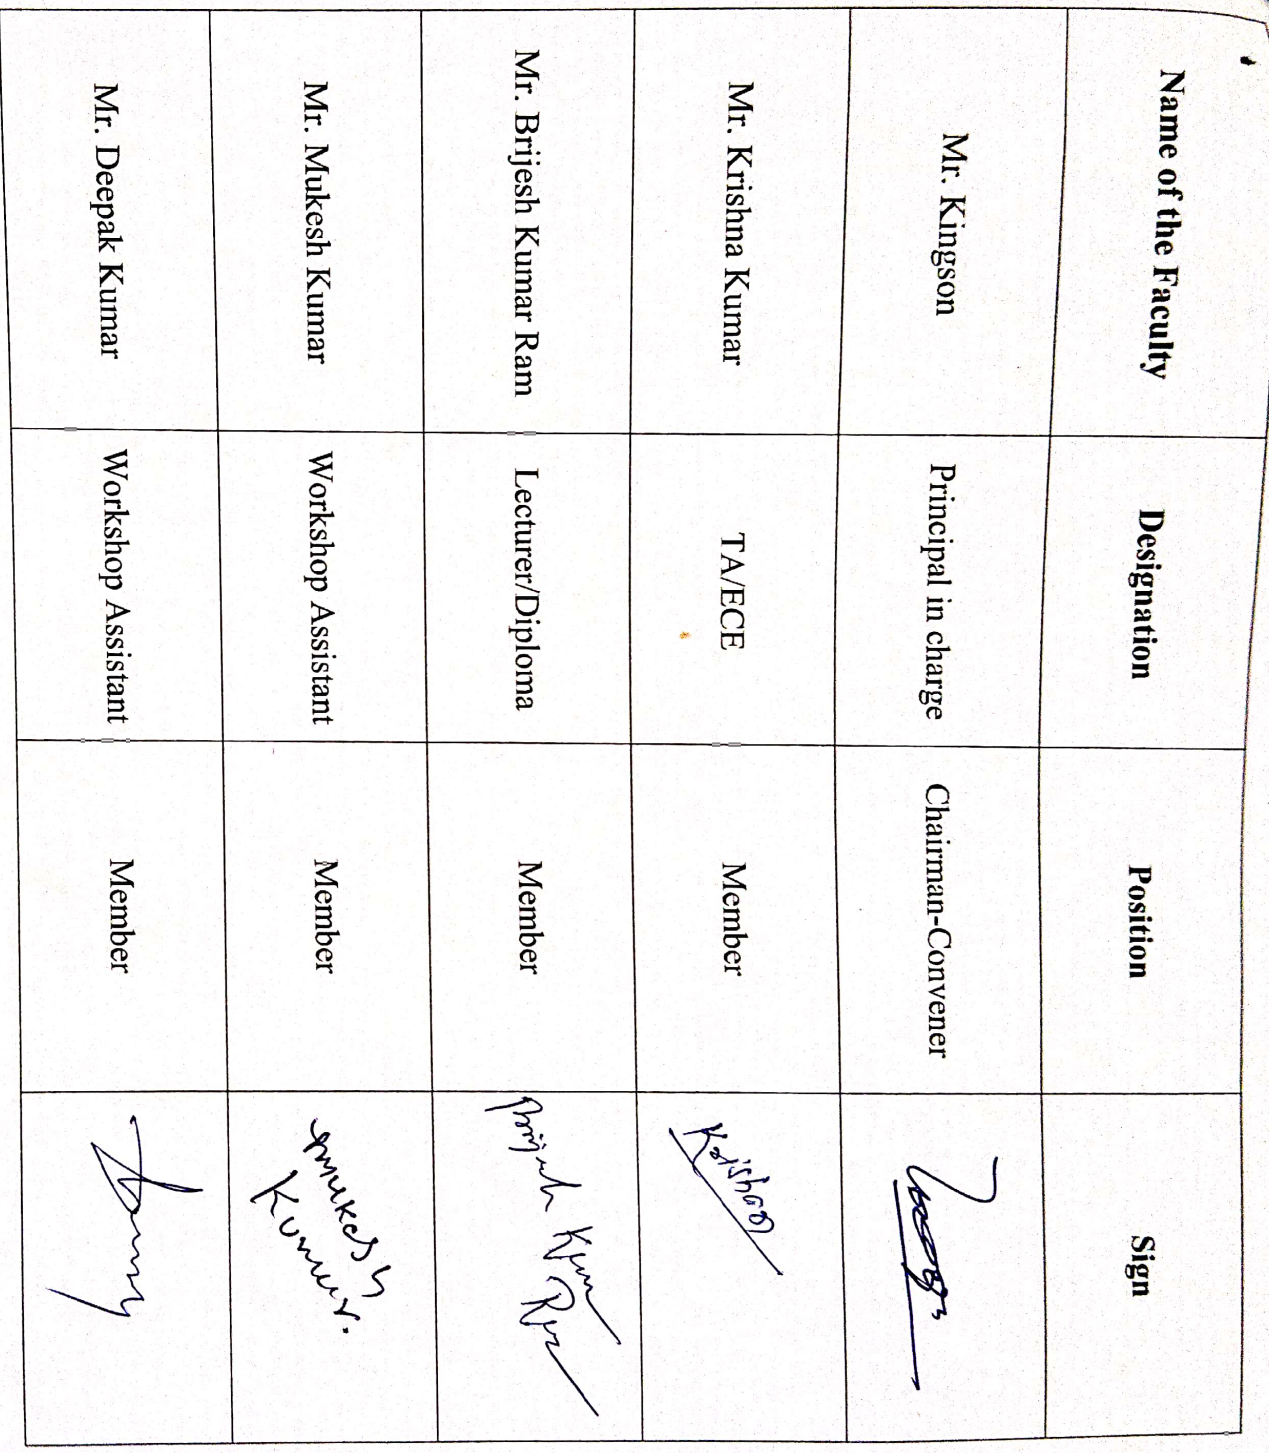 Name of the Faculty Designation Position Sign
Mr. Kingson Principal in charge Chairman-Convener
Mr. Krishna Kumar TA/ECE Member Krishna
Mr. Brijesh Kumar Ram Lecturer/Diploma Member Brijesh Kumar Ram
Mr. Mukesh Kumar Workshop Assistant Member Mukesh Kumar.
Mr. Deepak Kumar Workshop Assistant Member